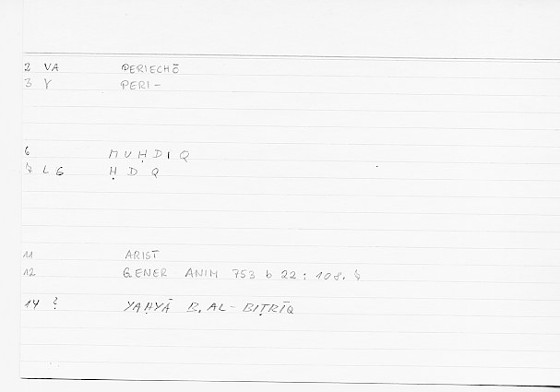 2 VA PERIECHŌ
3 γ PERI-
6 MUḤDIQ
L6 ḤDQ
11 ARIST
12 GENER ANIM 753 b 22 : 108.
14 ? YAḤYĀ B. AL-BIṬRĪQ